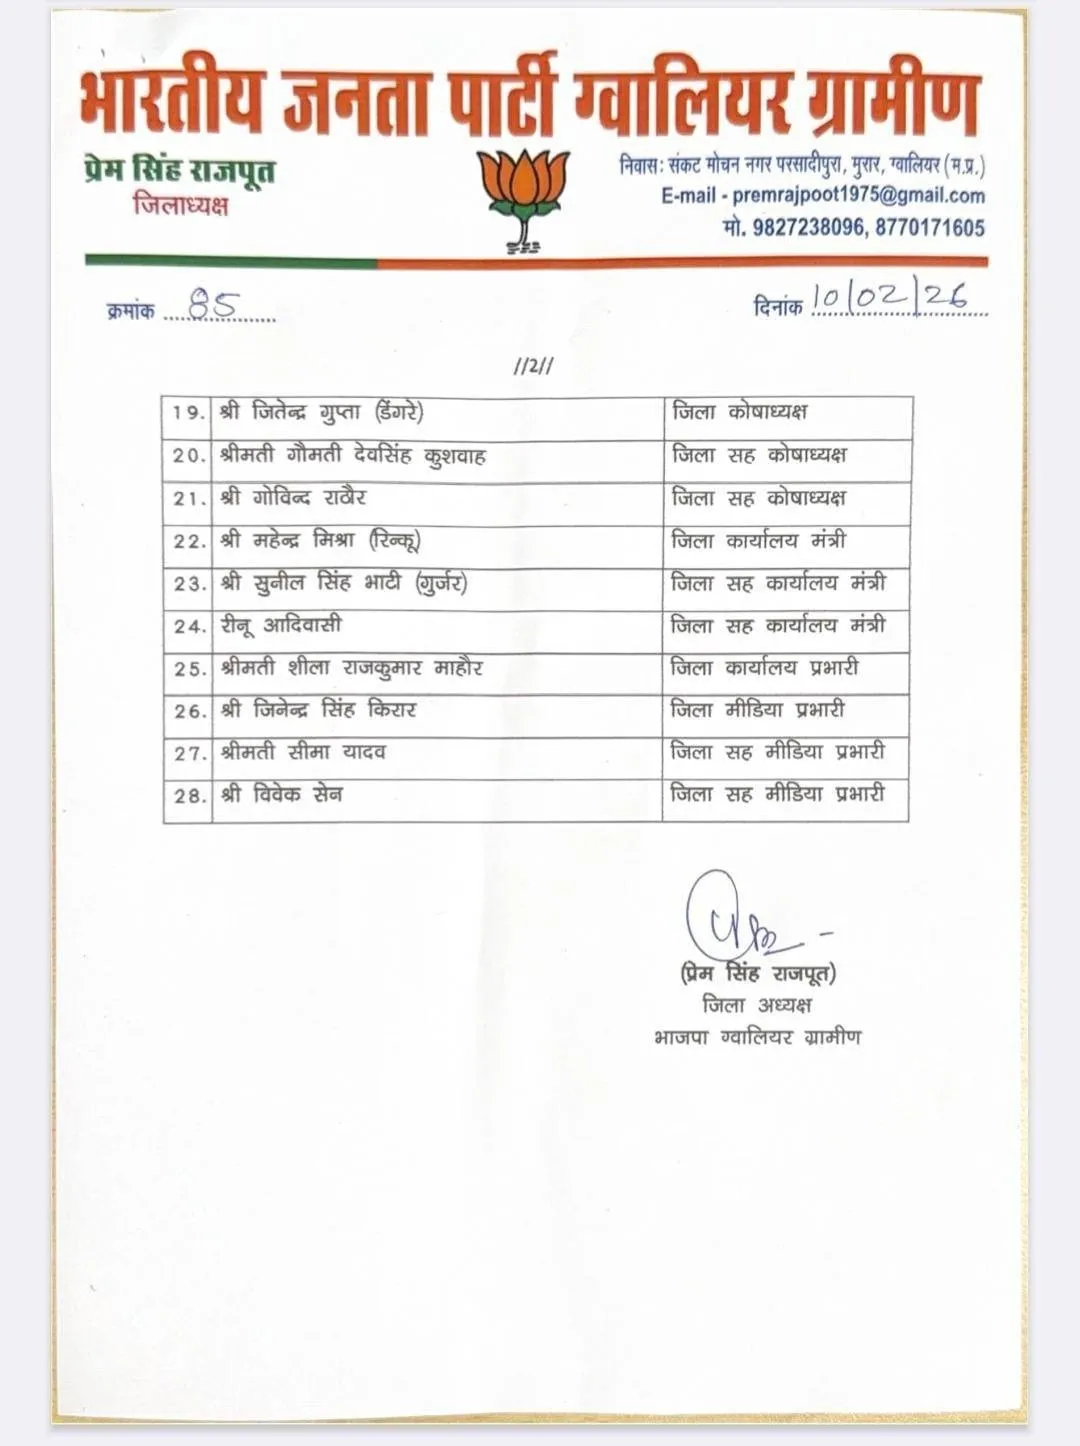 भारतीय जनता पार्टी ग्वालियर ग्रामीण
प्रेम सिंह राजपूत
जिलाध्यक्ष
निवास: संकट मोचन नगर परसादीपुरा, मुरार, ग्वालियर (म.प्र.)
E-mail - premrajpoot1975@gmail.com
मो. 9827238096, 8770171605
क्रमांक 85
दिनांक 10/02/26
//2//
19. श्री जितेन्द्र गुप्ता (डेंगरे) जिला कोषाध्यक्ष
20. श्रीमती गौमती देवसिंह कुशवाह जिला सह कोषाध्यक्ष
21. श्री गोविन्द राठौर जिला सह कोषाध्यक्ष
22. श्री महेन्द्र मिश्रा (रिन्कू) जिला कार्यालय मंत्री
23. श्री सुनील सिंह भाटी (गुर्जर) जिला सह कार्यालय मंत्री
24. रीनू आदिवासी जिला सह कार्यालय मंत्री
25. श्रीमती शीला राजकुमार माहौर जिला कार्यालय प्रभारी
26. श्री जिनेन्द्र सिंह किरार जिला मीडिया प्रभारी
27. श्रीमती सीमा यादव जिला सह मीडिया प्रभारी
28. श्री विवेक सेन जिला सह मीडिया प्रभारी
(प्रेम सिंह राजपूत)
जिला अध्यक्ष
भाजपा ग्वालियर ग्रामीण